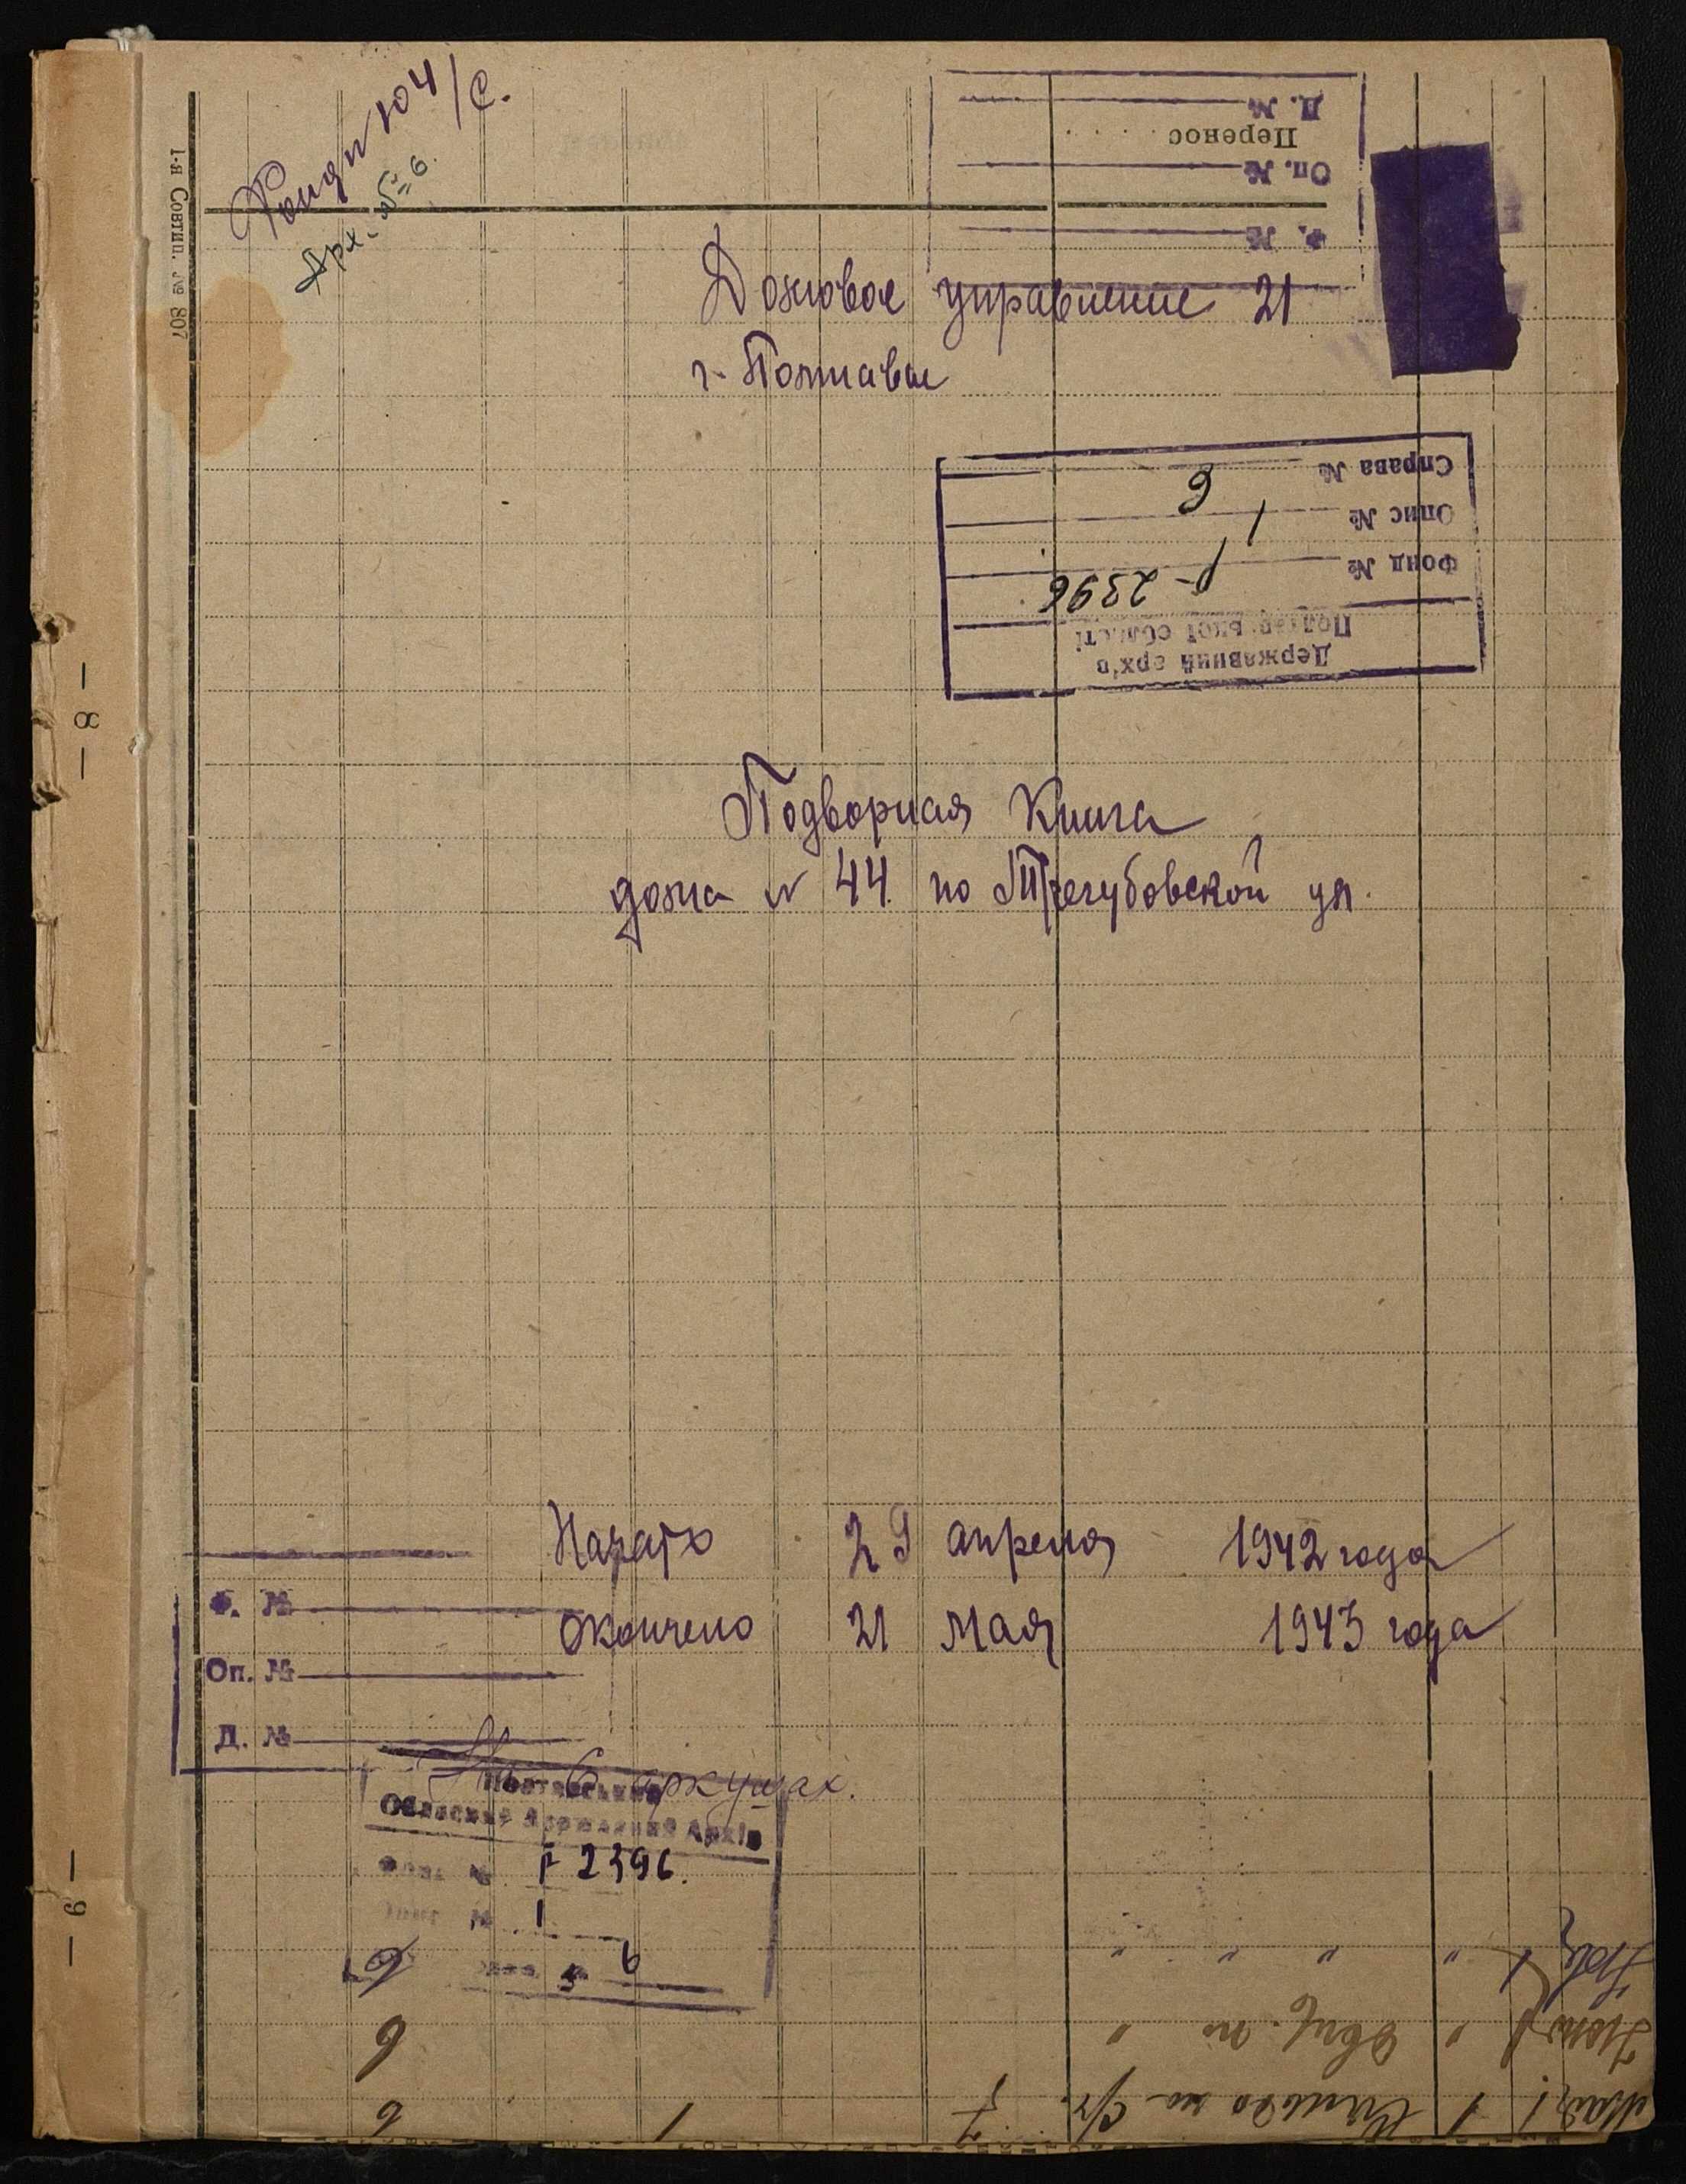 Фонд № 104/с.
Арх. № 6.
1-я Совтип. № 807
Д. №
Перенос
Оп. №
Ф. №
Домовое управление 21
г. Полтавы
Справа № 6
Опис № 1
Фонд № р-2396
Полтавської області
Державний архів
Подворная Книга
дома № 44 по Трегубовской ул.
— 8 —
Начато 29 апреля 1942 года
Окончено 21 мая 1943 года
Ф. №
Оп. №
Д. №
На 6 аркушах.
Полтавський
Обласний Державний Архів
Фонд № р 2396.
Опис № 1
6
— 9 —